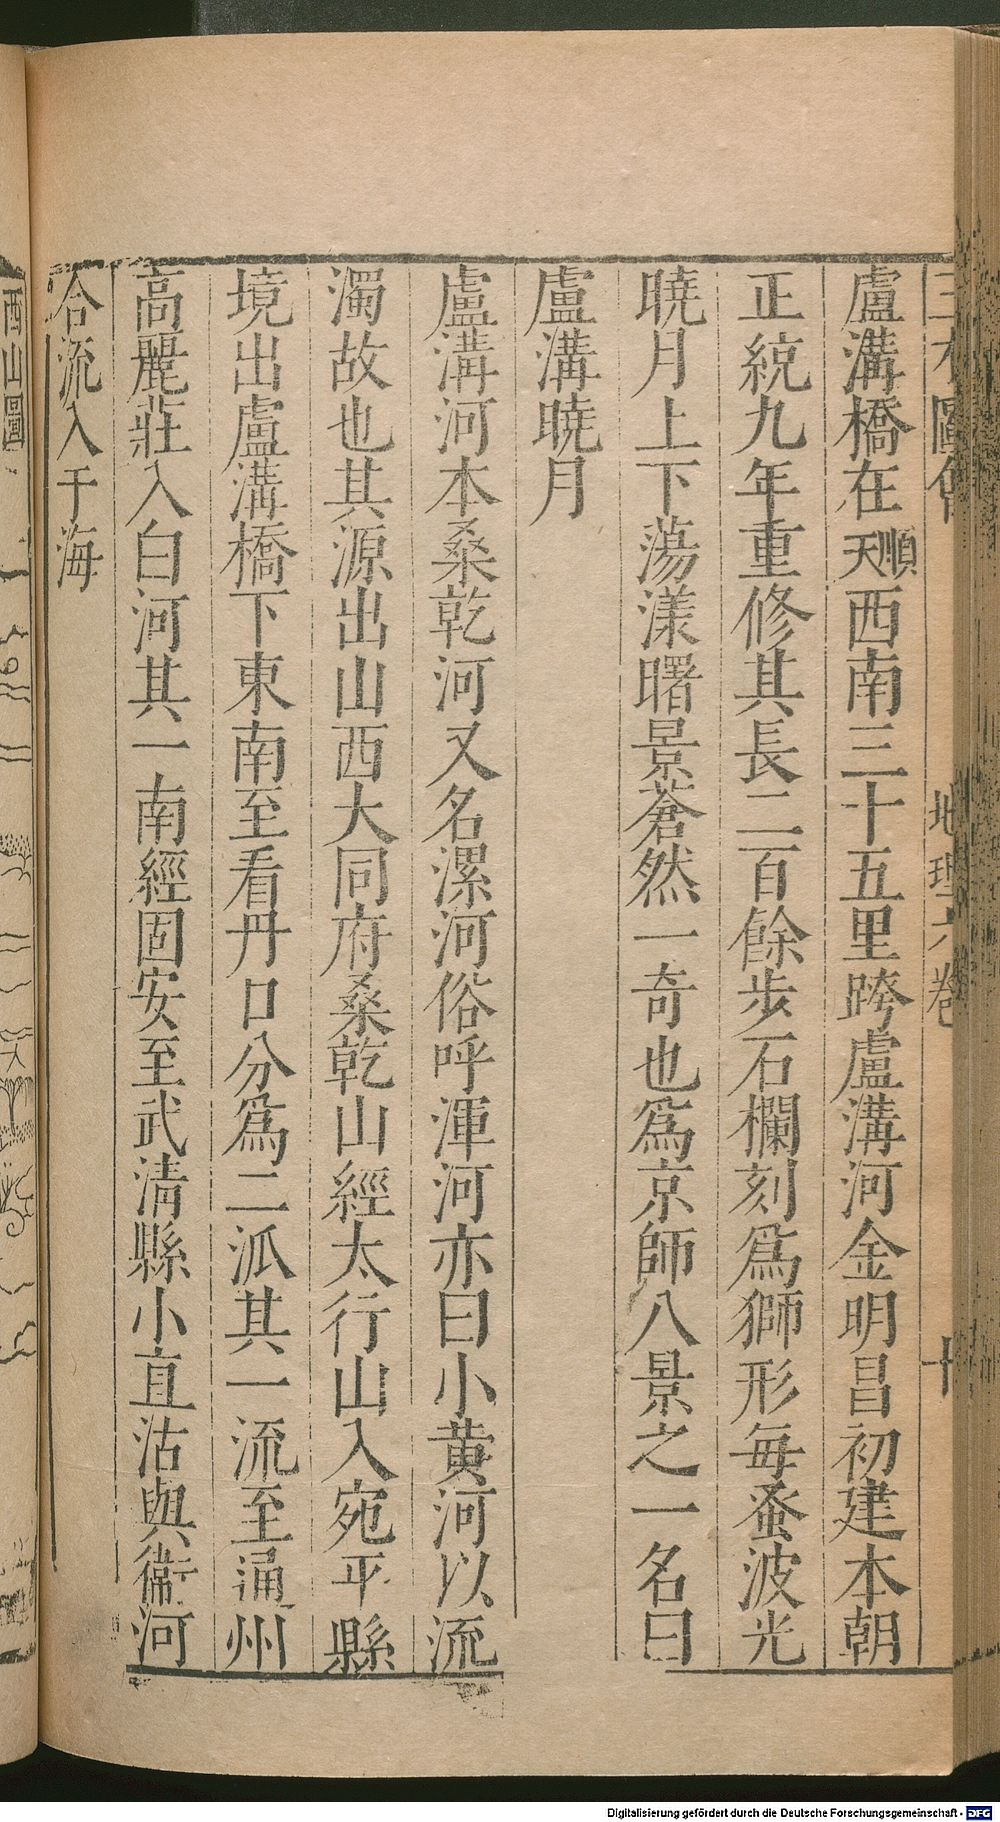 三才圖會 地理六卷 十
盧溝橋在順天西南三十五里跨盧溝河金明昌初建本朝
正統九年重修其長二百餘步石欄刻爲獅形每蚤波光
曉月上下蕩漾曙景蒼然一奇也爲京師八景之一名曰
盧溝曉月
盧溝河本桑乾河又名漯河俗呼渾河亦曰小黃河以流
濁故也其源出山西大同府桑乾山經太行山入宛平縣
境出盧溝橋下東南至看丹口分爲二派其一流至通州
高麗莊入白河其一南經固安至武清縣小直沽與衞河
合流入于海
西山圖
Digitalisierung gefördert durch die Deutsche Forschungsgemeinschaft - DFG